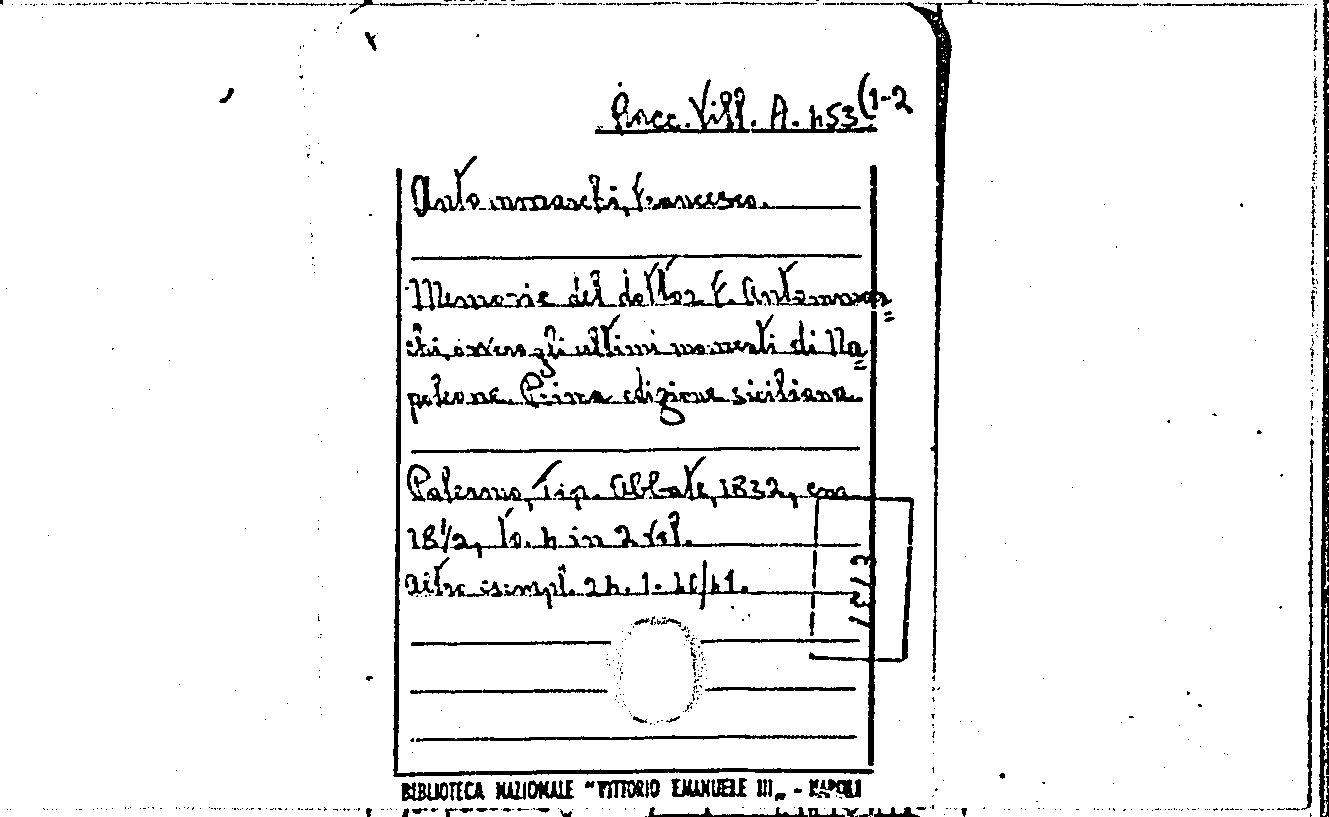 Racc. Vill. A. 453 (1-2
Antommarchi, Francesco.
Memorie del dottor F. Antommar=
chi, ovvero gli ultimi momenti di Na=
poleone. Prima edizione siciliana.
Palermo, Tip. Abbate, 1832, cm
18 1/2, to. 4 in 2 vol.
altro esempl. 24. 1.
BIBLIOTECA NAZIONALE "VITTORIO EMANUELE III„ - NAPOLI